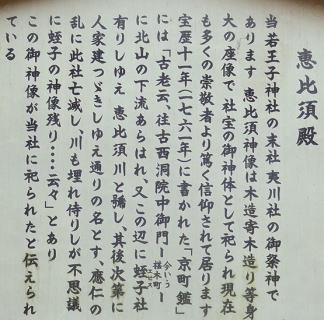 恵比須殿
当若王子神社の末社 夷川社の御祭神で
あります 恵比須神像は木造寄木造り等身
大の座像で 社宝の御神体として祀られ現在
も多くの崇敬者より篤く信仰されて居ります
宝暦十一年(一七六一年)に書かれた「京町鑑」
には「古老云、往古西洞院中御門ー今いふ椹木町ー
に北山の下流あらはれ、又この辺に蛭子社エビス
有りしゆえ 恵比須川と號し、其後次第に
人家建つゞきしゆえ通りの名とす、應仁の
乱に此社亡滅し、川も埋れ侍りしが不思議
に蛭子の神像残り‥‥云々」とあり
この御神像が当社に祀られたと伝えられ
ている